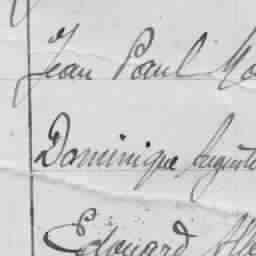 Jean Paul
Dominique Auguste
Edouard